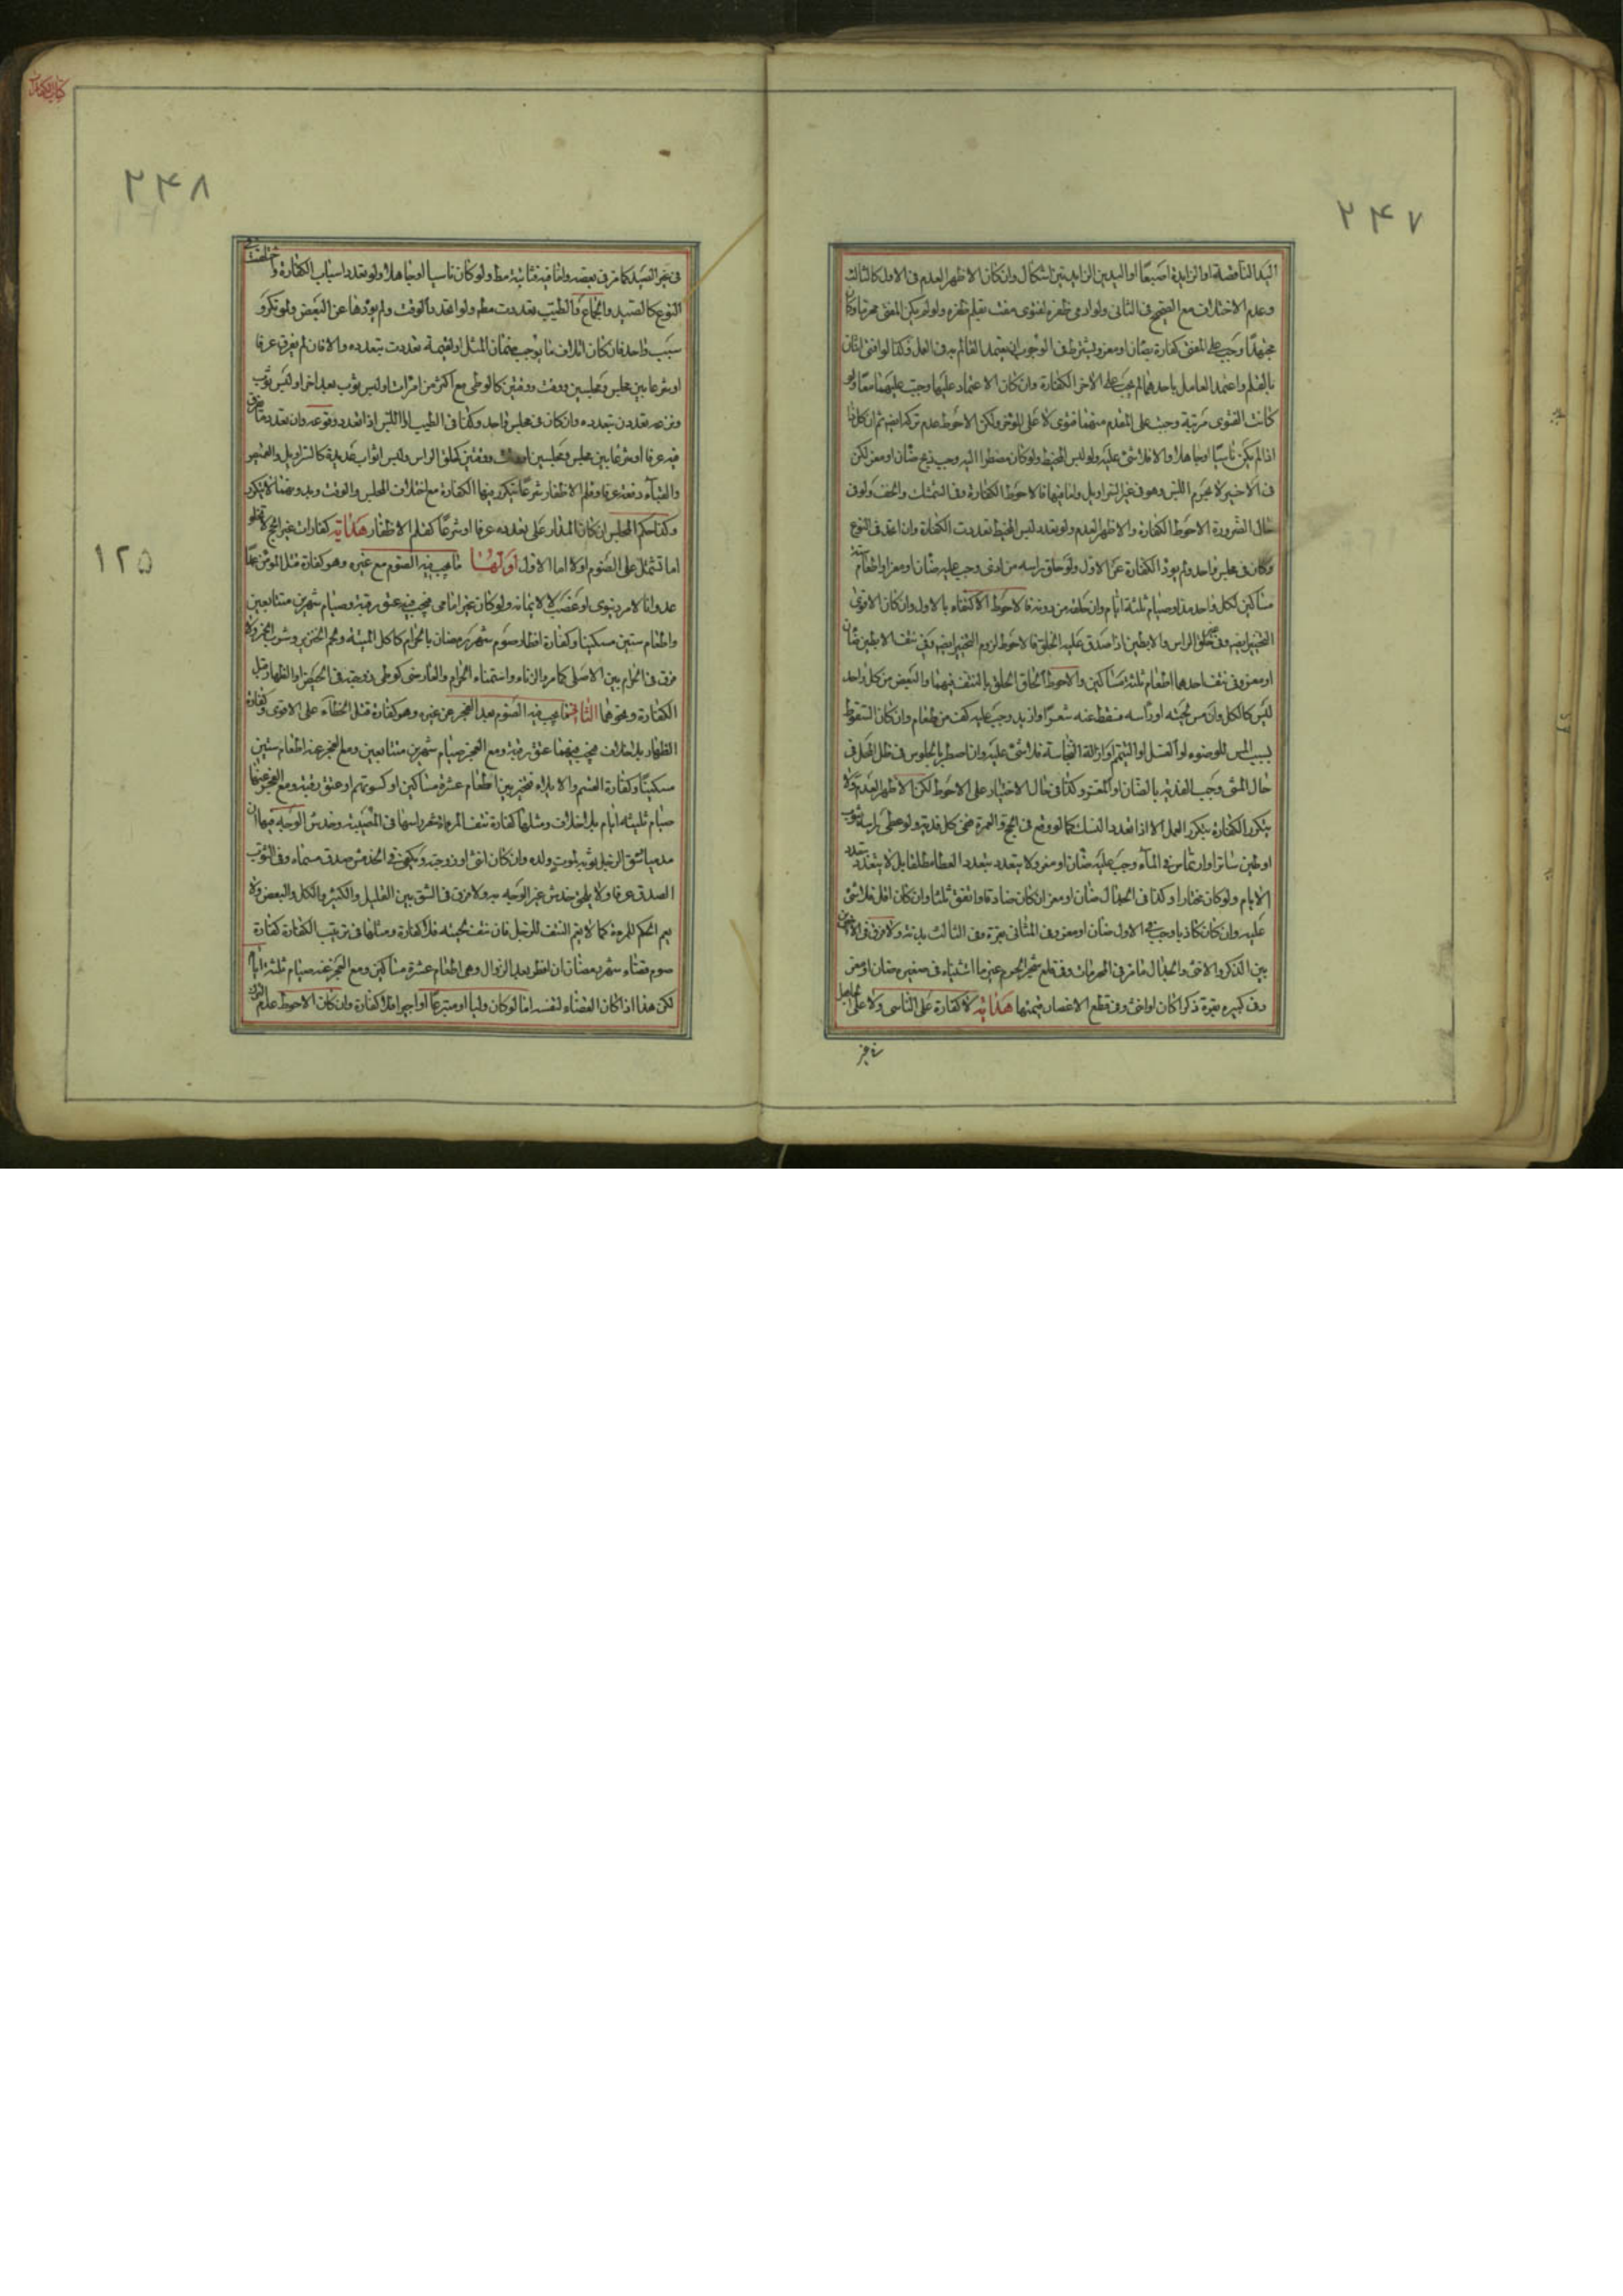 ۲۴۷
اليد الناقصة او الزايدة اصبعا او اليدين الزايدتين اشكال وان كان الاظهر العدم فى الاول كالثالث
وعدم الاختلاف مع الصحيح فى الثانى ولو ادمى ظفره لفتوى مفت بقلم ظفره ولو لم يكن المفتى محرما وكان
مجتهدا وجب على المفتى كفارة بضان او معز ويشترط فى الوجوب ان يعتمد القالم به فى العمل وكذا لو افتى اثنان
بالقلم واعتمد العامل باحدهما لم يجب على الاخر الكفارة وان كان الاعتماد عليهما وجبت عليهما معا ولو
كانت الفتوى مرتبة وجبت على المقدم منهما فتوى لا على المؤخر ولكن الاحوط عدم تركه ايضه ثم ان كل ذا
اذا لم يكن ناسيا او جاهلا والا فلا شئ عليه ولو لبس المخيط ولو كان مضطرا اليه وجب ذبح ضان او معز لكن
فى الاخير لا يحرم اللبس وهو فى غير السراويل واما فيها فالاحوط الكفارة وفى الشمشك والخف ولو فى
حال الضرورة الاحوط الكفارة والاظهر العدم ولو تعدد لبس المخيط تعددت الكفارة وان اتحد فى النوع
وكان فى مجلس واحد ولم يؤد الكفارة عن الاول ولو حلق راسه من اذى وجب عليه ضان او معز او اطعام ستة
مساكين لكل واحد مد او صيام ثلثة ايام وان حلقه من دونه فالاحوط الاكتفاء بالاول وان كان الاقوى
التخيير ايضه وفى حلق الراس والابطين اذا صدق عليه الحلق فالاحوط لزوم التخيير ايضه وفى نتف الابطين ضان
او معز وفى نتف احدهما اطعام ثلثة مساكين والاحوط الحاق الحلق بالنتف فيهما والبعض من كل واحد
ليس كالكل وان مس لحيته او راسه فسقط عنه شعر او ازيد وجب عليه كف من طعام وان كان السقوط
بسبب المس للوضوء او الغسل او التيمم او ازالة النجاسة فلا شئ عليه وان اضطر بالجلوس فى ظل المحمل فى
حال المشى وجب الفدية بالضان او المعز وكذا فى حال الاختيار على الاحوط لكن الاظهر العدم ولا
يتكرر الكفارة بتكرر العمل الا اذا تعدد النسك كما لو وقع فى الحج والعمرة ففى كل فدية ولو غطى راسه بثوب
او طين ساتر او ارتماس فى الماء وجب عليه ضان او معز ولا يتعدد بتعدد الغطا مطلقا بل لا يتعدد بتعدد
الايام ولو كان مختارا وكذا فى الجدال ضان او معز ان كان صادقا واتفق ثلثا وان كان اقل فلا شئ
عليه وان كان كاذبا وجب فى الاول ضان او معز وفى الثانى بقرة وفى الثالث بدنة ولا فرق فى الاخيرين
بين الذكر والانثى والجدال ما مر فى المحرمات وفى قلع شجر الحرم غير ما استثناه فى صغيره ضان او معز
وفى كبيره بقرة ذكرا كان او انثى وفى قطع الاغصان قيمتها هداية لا كفارة على الناسى ولا على الجاهل
فى غير
كتاب الكفارات
۲۴۸
۱۲۵
فى غير الصيد كما مر فى بعضه واما فيه فثابتة مطه ولو كان ناسيا او جاهلا ولو تعدد اسباب الكفارة واختلفت فى
النوع كالصيد والجماع والطيب تعددت مطه ولو اتحد الوقت ولم يؤدها عن البعض ولو تكرر
سبب واحد فان كان اتلاف ما يوجب ضمان المثل او القيمة تعددت بتعدده والا فان لم يفرق عرفا
او شرعا بين مجلس ومجلسين ووقت ووقتين كالوطى مع اكثر من امرات او لبس ثوب بعد اخر او لبس ثوب
ونزعه تعددت بتعدده وان كان فى مجلس واحد وكذا فى الطيب او اللبس اذا تعدد وقوعه وان تعدد ما فرق
فيه عرفا او شرعا بين مجلس ومجلسين او وقت ووقتين كحلق الراس ولبس اثواب عديدة كالسراويل والقميص
والقباء دفعة عرفا وقلم الاظفار شرعا يتكرر فيها الكفارة مع اختلاف المجلس والوقت وبدونهما لا يتكرر
وكذا حكم المجلس ان كان المدار على تعدده عرفا او شرعا كقلم الاظفار هداية كفارات غير الحج لا تخلو
اما تشتمل على الصوم او لا اما الاول اولها ما يجب فيه الصوم مع غيره وهو كفارة قتل المؤمن ظلما
عدوانا لامر دنيوى او غضب لا لايمانه ولو كان غير امامى فيجب فيه عتق رقبة وصيام شهرين متتابعين
واطعام ستين مسكينا وكفارة افطار صوم شهر رمضان بالحرام كاكل الميتة ولحم الخنزير وشرب الخمر ولا
فرق فى الحرام بين الاصلى كما مر والزناء واستمناء الحرام والعارضى كوطى زوجته فى الحيض او الظهار قبل
الكفارة ونحوهما الثانى ما يجب فيه الصوم بعد العجز عن غيره وهو كفارة قتل الخطاء على الاقوى وكفارة
الظهار بلا خلاف فيجب فيهما عتق رقبة ومع العجز صيام شهرين متتابعين ومع العجز عنه اطعام ستين
مسكينا وكفارة القسم والايلاء فتخير بين اطعام عشرة مساكين او كسوتهم او عتق رقبة ومع العجز عنها
صيام ثلثه ايام بلا خلاف ومثلها كفارة نتف المرءة شعر راسها فى المصيبة وخدش الوجه فيها ان
ادمى او شق الرجل ثوبه لموت ولده وان كان انثى او زوجته ويكفى فى الخدش صدق مسماه وفى الثوب
الصدق عرفا ولا يلحق خدش غير الوجه به ولا فرق فى الشق بين القليل والكثير والكل والبعض ولا
يعم الحكم للمرءة كما لا يعم النتف للرجل فان نتف لحيته فلا كفارة ومثلها فى ترتيب الكفارة كفارة
صوم قضاء شهر رمضان ان افطر بعد الزوال وهى اطعام عشرة مساكين ومع العجز عنه صيام ثلثة ايام
لكن هذا اذا كان القضاء لنفسه اما لو كان وليا او متبرعا او اجيرا فلا كفارة وان كان الاحوط عدم الترك